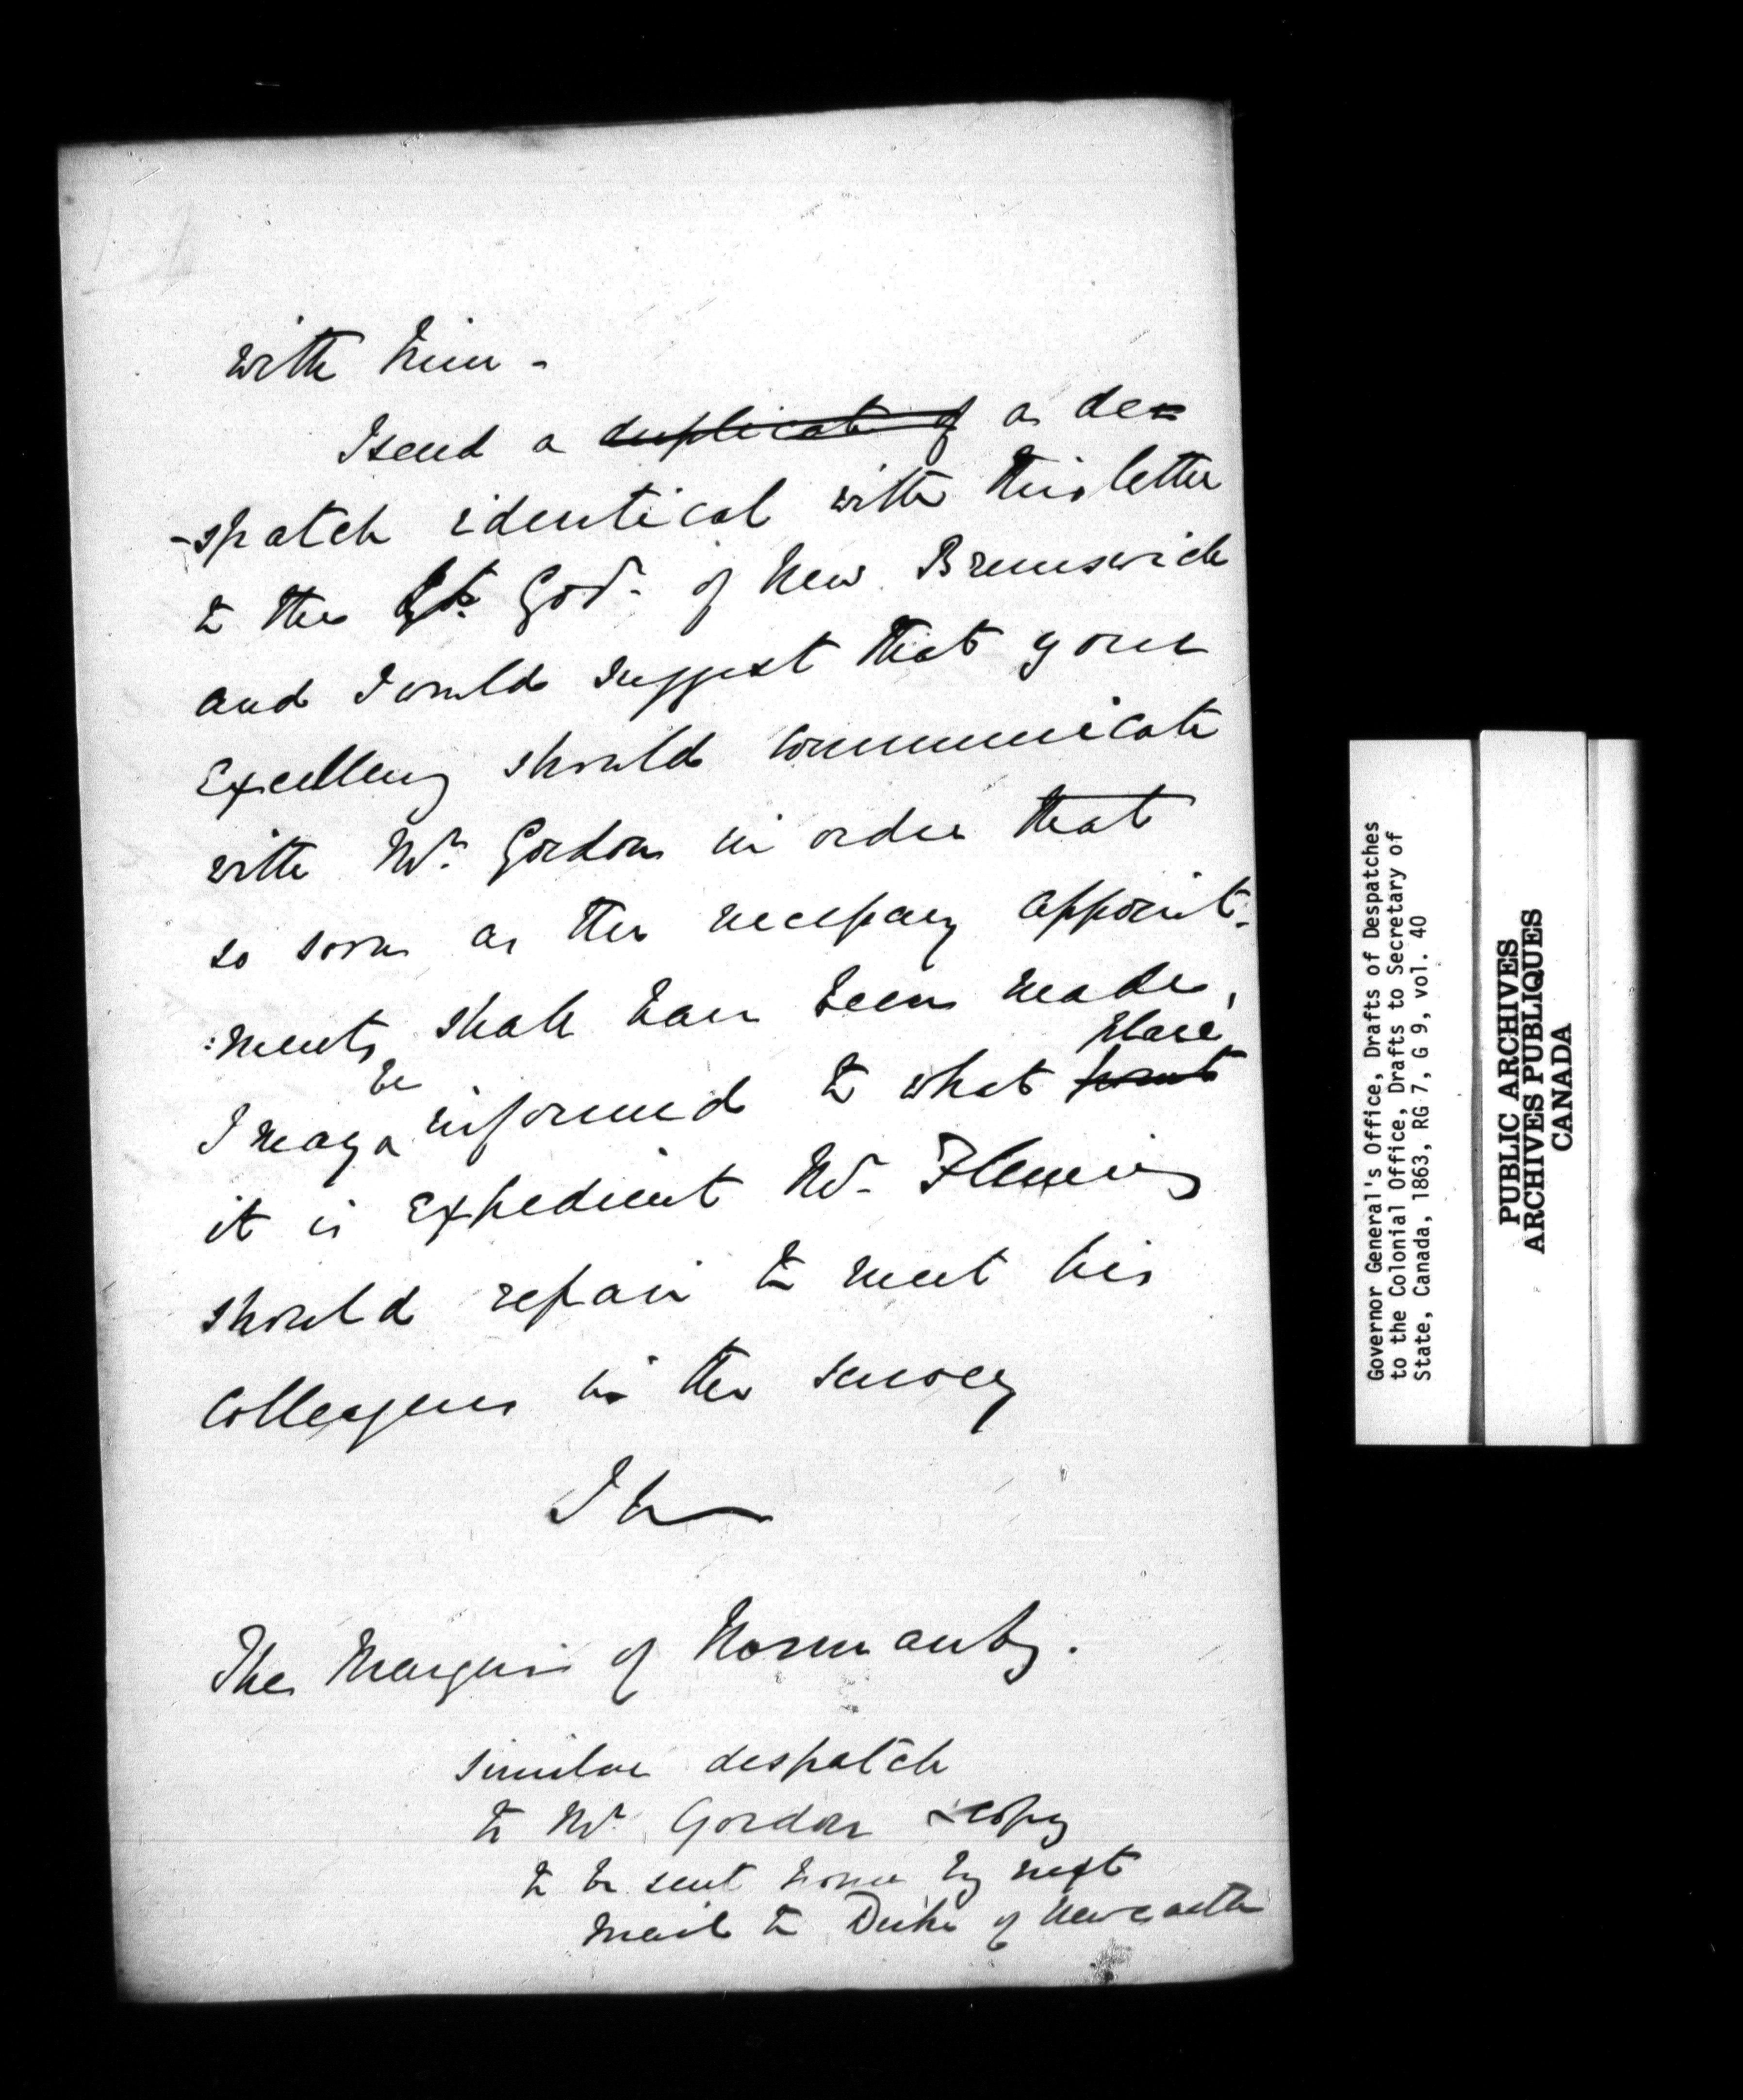 with him -
I send a duplicate of a de=
-spatch identical with this letter
to the Lt. Govr. of New Brunswick
and I would suggest that your
Excellency should communicate
with Mr. Gordon in order that
so soon as the necessary appoint:
:ments shall have been made,
place
be
I may informed to what point
it is expedient Mr. Fleming
should repair to meet his
colleagues in the survey
I h
The Marquis of Normanby.
similar despatch
to Mr. Gordon & copy
to be sent home by next
mail to Duke of Newcastle
Governor General's Office, Drafts of Despatches
to the Colonial Office, Drafts to Secretary of
State, Canada, 1863, RG 7, G 9, vol. 40
PUBLIC ARCHIVES
ARCHIVES PUBLIQUES
CANADA